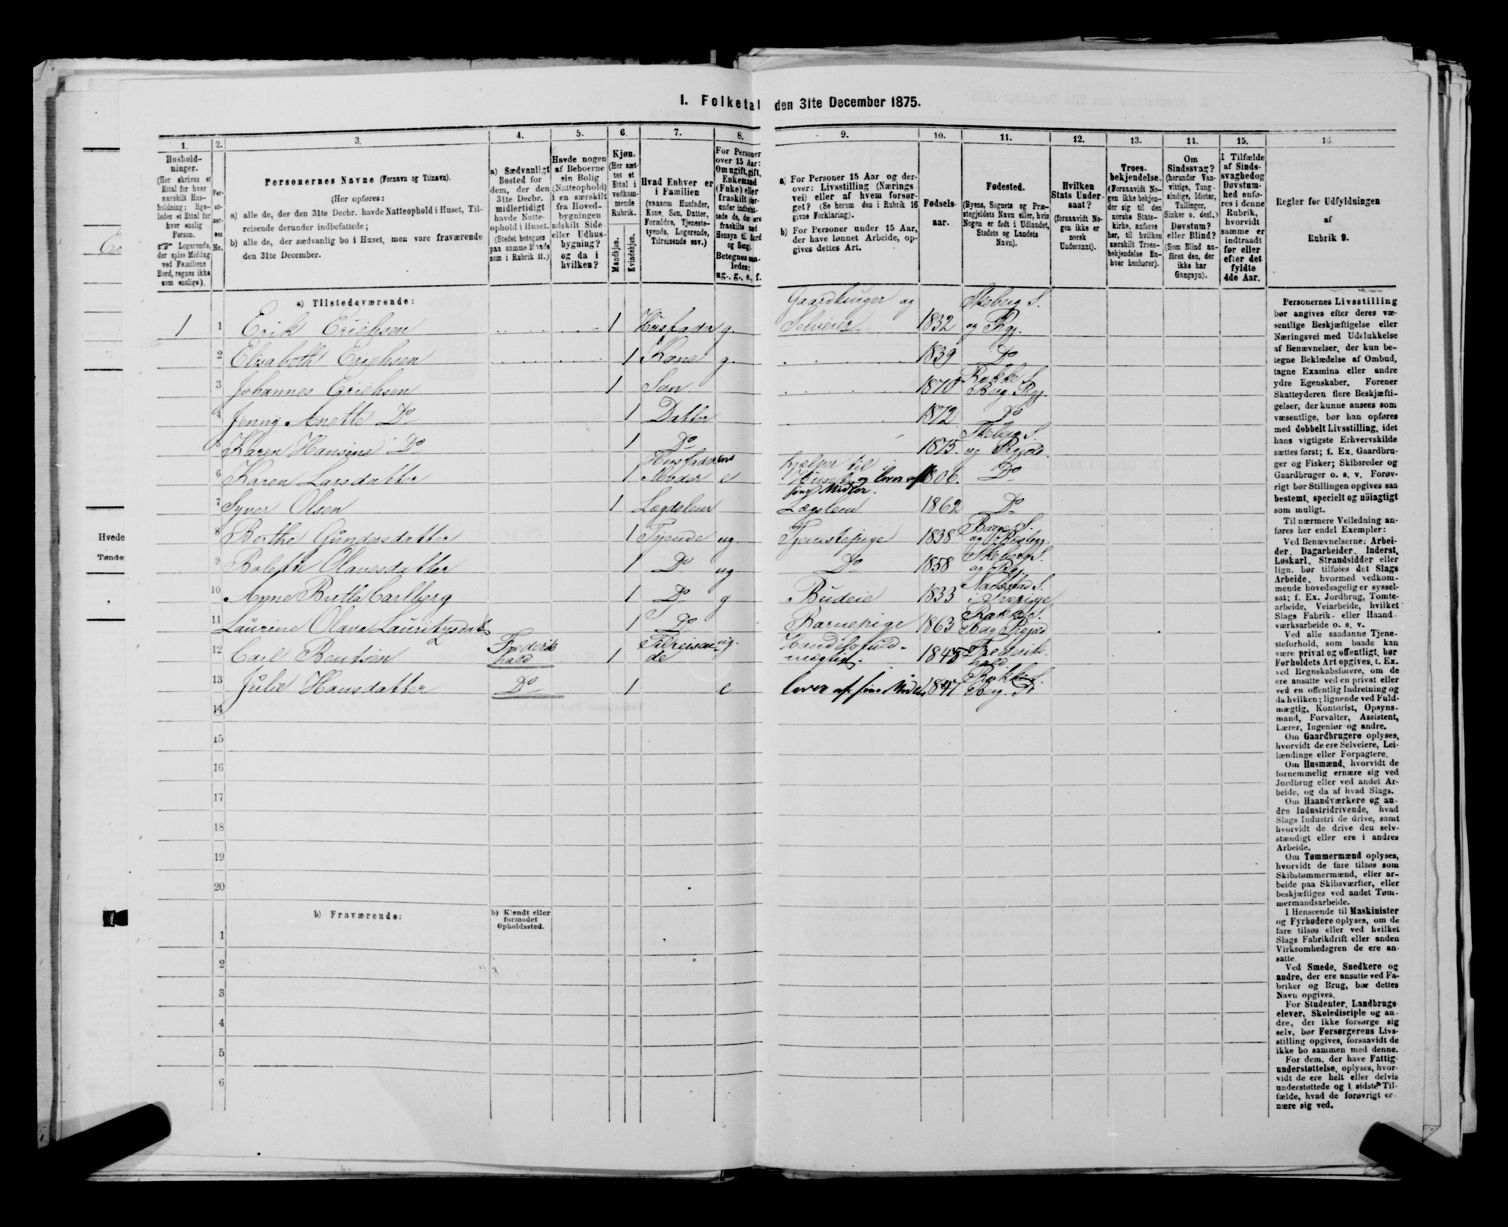 I. Folketal den 31te December 1875.
1. 2. 3. 4. 5. 6. 7. 8. 9. 10. 11. 12. 13. 14. 15. 16.
Husholdninger.
Personernes Navne (Fornavn og Tilnavn).
(Her opføres:
a) alle de, der den 31te Decbr. havde Natteophold i Huset, Tilreisende derunder indbefattede;
b) alle de, der sædvanlig bo i Huset, men vare fraværende den 31te December.
a) Sædvanligt Bosted for dem, der den 31te Decbr. midlertidigt havde Natteophold i Huset.
Havde nogen af Beboerne sin Bolig (Natteophold) i en særskilt fra Hovedbygningen adskilt Side eller Udhusbygning? og da i hvilken?
Kjøn.
Mandkjøn. Kvindekjøn.
Hvad Enhver er i Familien
(saasom Husfader, Kone, Søn, Datter, Forældre, Tjenestetyende, Logerende, Tilreisende osv.)
a) For Personer 15 Aar og derover: Livsstilling (Næringsvei) eller af hvem forsørget? (Se herom den i Rubrik 16 givne Forklaring).
b) For Personer under 15 Aar, der have lønnet Arbeide, opgives dettes Art.
Fødselsaar.
Fødested.
(Byens, Sognets og Præstegjeldets Navn eller, hvis Nogen er født i Udlandet, Stedets og Landets Navn).
Hvilken Stats Undersaat?
(foraavidt Nogen ikke er norsk Undersaat).
Troesbekjendelse.
Om Sindssvag? (herunder Vanvittige, Tungsindige, Idioter, Tullinger, Sinker o. desl.) Døvstum? eller Blind? (Som Blind anføres den, der ikke har Gangsyn).
I Tilfælde af Sindssvaghed og Døvstumhed anføres i denne Rubrik, hvorvidt samme er indtraadt før eller efter det fyldte 4de Aar.
Regler for Udfyldningen af Rubrik 9.
a) Tilstedeværende:
1 1 Erik Erichsen 1 Husfader g. Gaardbruger og Selveier 1832 Skeberg S. og Pgj.
2 Elisabeth Erichsen 1 Kone g. 1839 Do
3 Johannes Erichsen 1 Søn 1870 Rokke S. Berg Pgj.
4 Jenny Anette Do 1 Datter 1872 Do
5 Karen Hansine Do 1 Do 1875 Skeberg S. og Pgjd.
6 Karen Larsdatter 1 Husfaderens Moder e hjælper til Huusl. og lever af sine Midler. 1806 Do
7 Syver Olsen 1 Lægdslem Lægslem 1862 Do
8 Berthe Gundersdatter 1 Tyende ug Tjenestepige 1838
9 Olavesdatter 1 Do ug Do 1858 Skeberg S. og Pgj.
10 Anne Britta Carlberg 1 Do g Budeie 1833 i Sverige
11 Laurine Olava 1 Do Barnepige 1863 Rokke S. Berg Pgjd
12 Carl Bentsen Frederikshald 1 Tilreisende ug. Handelsfuldmægtig. 1848 Fredrikshald
13 Julie Hansdatter Do 1 e lever af sine Midler 1847 Rokke S. Berg P.
14
15
16
17
18
19
20
b) Fraværende:
b) Kjendt eller formodet Opholdssted.
1
2
3
4
5
6
Personernes Livsstilling bør angives efter deres væsentlige Beskjæftigelse eller Næringsvei med Udelukkelse af Benævnelser, der kun betegne Beklædelse af Ombud, tagne Examina eller andre ydre Egenskaber. Forener Skatteyderen flere Beskjæftigelser, der kunne ansees som væsentlige, bør han opføres med dobbelt Livsstilling, idet hans vigtigste Erhvervskilde sættes først; f. Ex. Gaardbruger og Fisker; Skibsreder og Gaardbruger o. s. v. Forøvrigt bør Stillingen opgives saa bestemt, specielt og nöiagtigt som muligt.
Til nærmere Veiledning anføres her endel Exempler:
Ved Benævnelserne: Arbeider, Dagarbeider, Inderst, Løskarl, Strandsidder eller lign. bør tilføies det Slags Arbeide, hvormed vedkommende hovedsagelig er sysselsat; f. Ex. Jordbrug, Tomtearbeide, Veiarbeide, hvilket Slags Fabrik- eller Haandværksarbeide o. s. v.
Ved alle saadanne Tjenesteforhold, som baade kan være privat og offentligt, bør Forholdets Art opgives, t. Ex. ved Regnskabsførere, om de ere ansatte ved en privat eller ved en offentlig Indretning og da hvilken; lignende ved Fuldmægtig, Kontorist, Opsynsmand, Forvalter, Assistent, Lærer, Ingeniør og andre.
Om Gaardbrugere oplyses, hvorvidt de ere Selveiere, Leilændinge eller Forpagtere.
Om Husmænd, hvorvidt de fornemmelig ernære sig ved Jordbrug eller ved andet Arbeide, og da af hvad Slags.
Om Haandværkere og andre Industridrivende, hvad Slags Industri de drive, samt hvorvidt de drive den selvstændigt eller ere i andres Arbeide.
Om Tømmermænd oplyses, hvorvidt de fare tilsøs som Skibstømmermænd, eller arbeide paa Skibsværfter, eller beskjæftiges ved andet Tømmermandsarbeide.
I Henseende til Maskinister og Fyrbødere oplyses, om de fare tilsøs eller ved hvilket Slags Fabrikdrift eller anden Virksomhed de ere ansatte.
Ved Smede, Snedkere og andre, der ere ansatte ved Fabriker og Brug, bør dettes Navn opgives.
For Studenter, Landbrugselever, Skoledisciple og andre, der ikke forsørge sig selv, bør Forsørgerens Livsstilling opgives, forsaavidt de ikke bo sammen med denne.
For dem, der have Fattigunderstøttelse, oplyses, hvorvidt de ere helt eller delvis understøttede og i sidste Tilfælde, hvad de forøvrigt ernære sig ved.
Hvede
Tønder